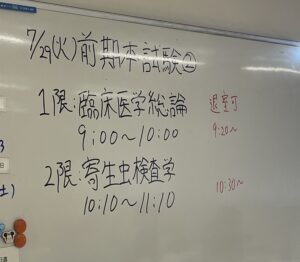 7/29(火)前期本試験②
1限:臨床医学総論 退室可
9:00～10:00 9:20～
2限:寄生虫検査学
10:10～11:10 10:30～
土)